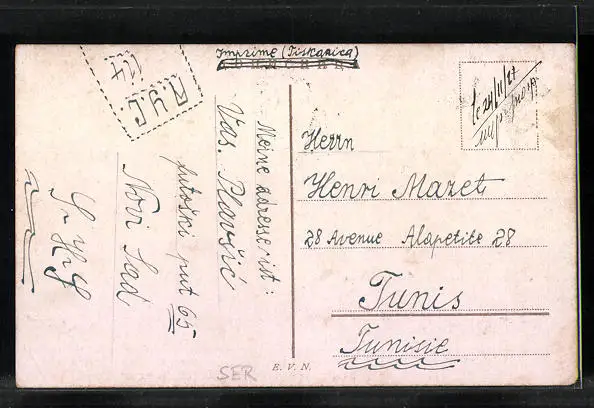 Imprimé (Tiskanica)
Meine adresse ist:
Vas. Plavšić
putoški put 65
Novi Sad
le 24/11/27
Herrn
Henri Maret
28 Avenue Alapetite 28
Tunis
Tunisie
E. V. N.
SER